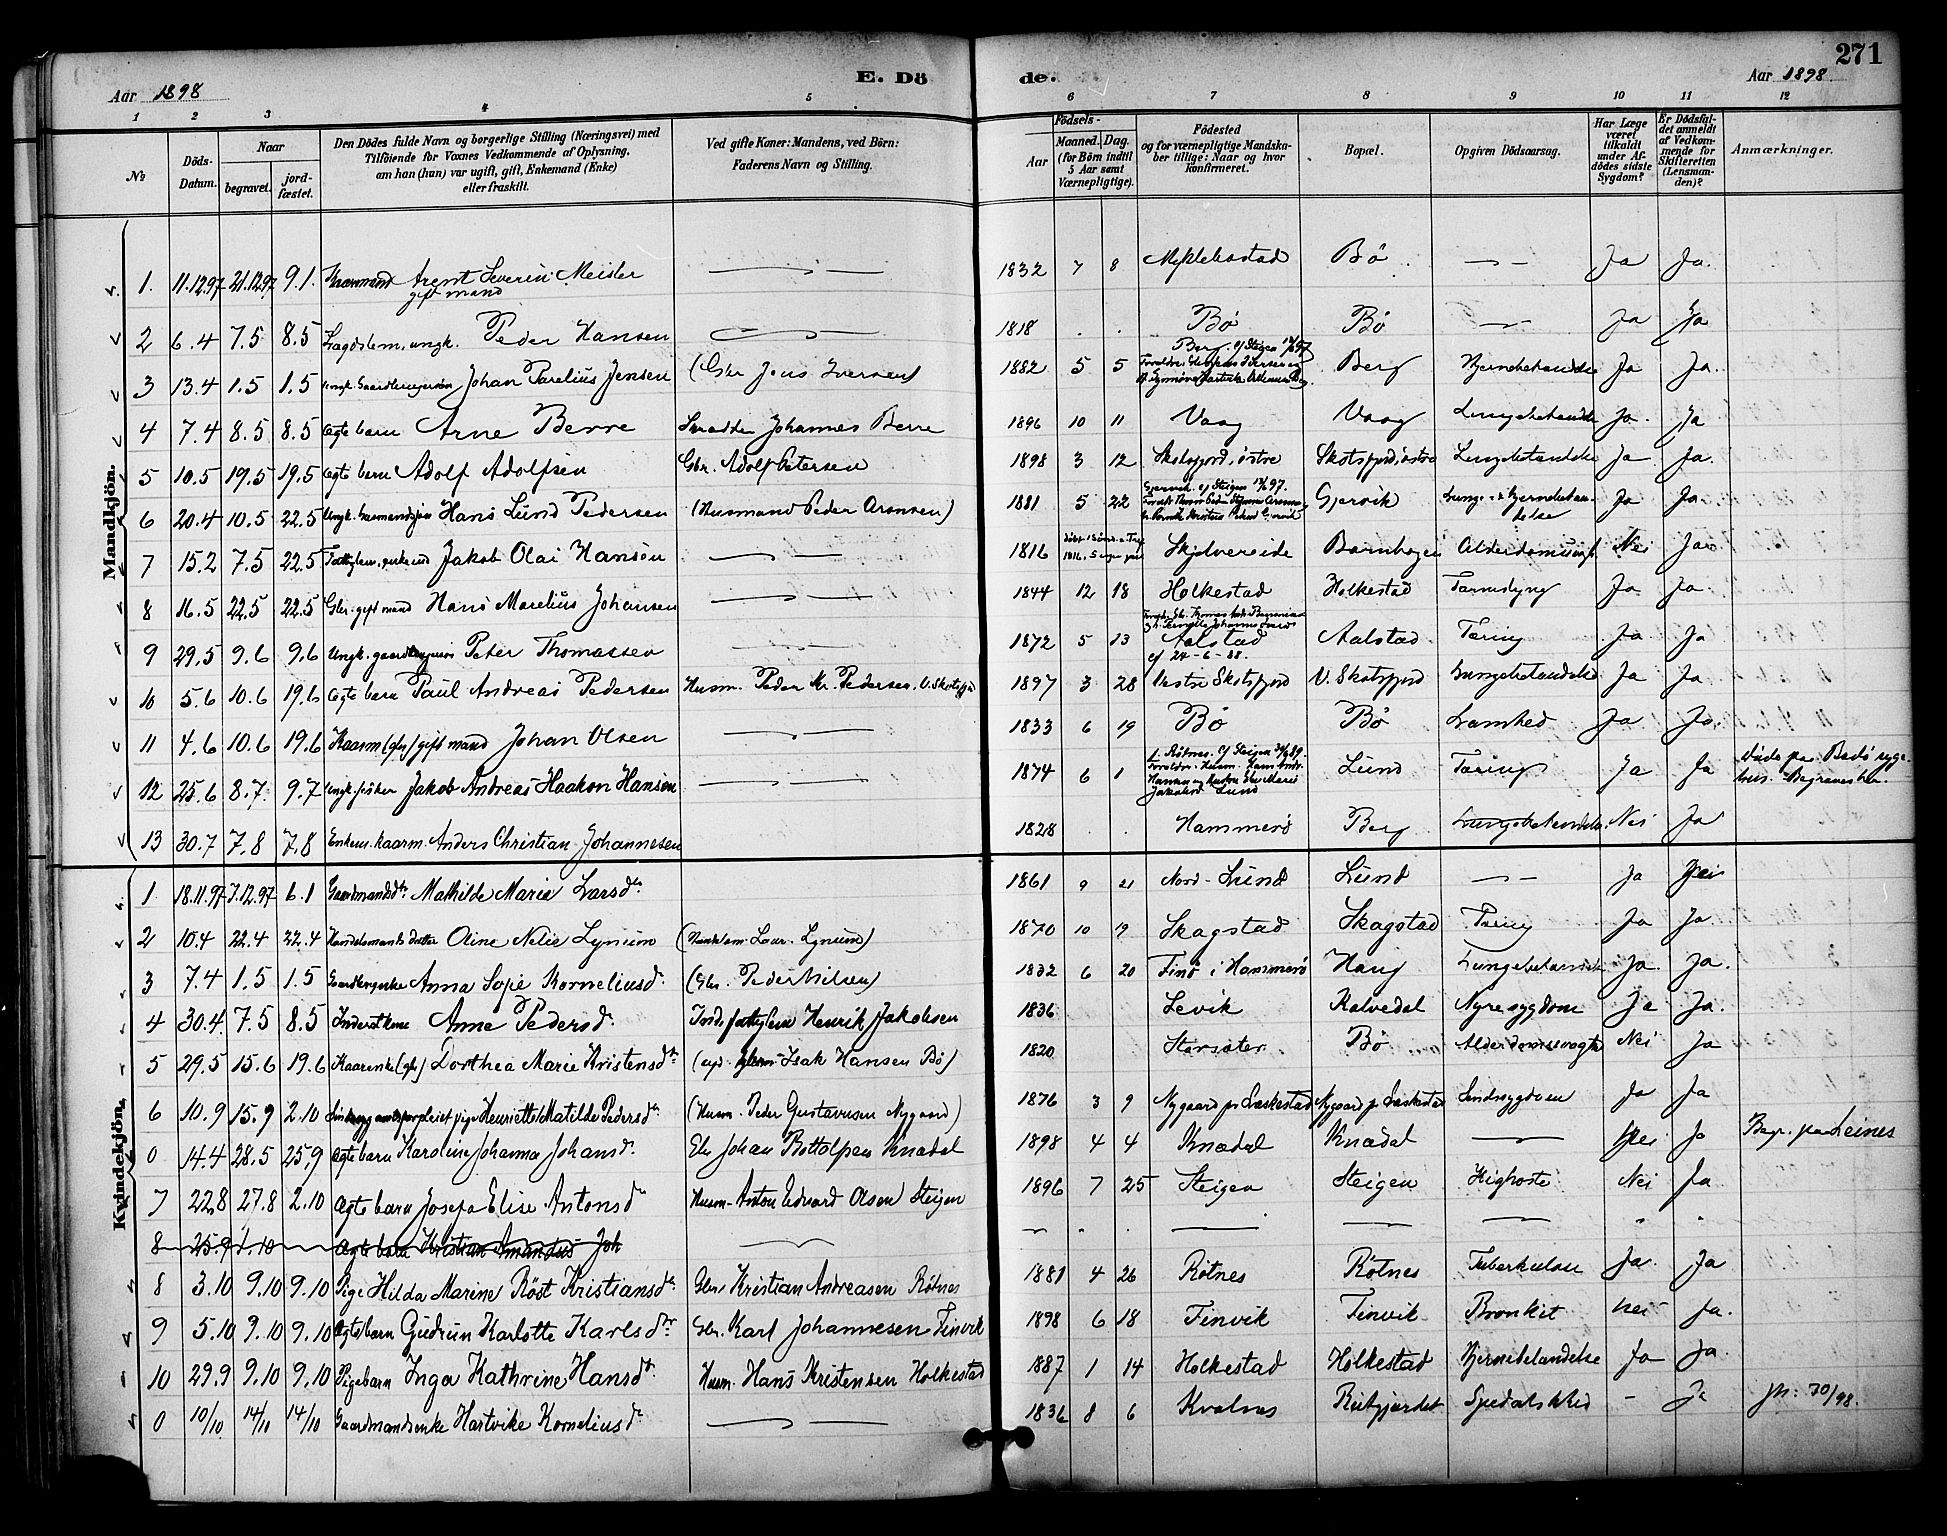 E. Dö de.
271
Aar 1898
Aar 1898
1 2 3 4 5 6 7 8 9 10 11 12
№
Döds-Datum.
Naar
begravet.
jordfæstet.
Den Dödes fulde Navn og borgerlige Stilling (Næringsvei) med
Tilföiende for Voxnes Vedkommende af Oplysning,
om han (hun) var ugift, gift, Enkemand (Enke)
eller fraskilt.
Ved gifte Koner: Mandens, ved Börn:
Faderens Navn og Stilling.
Födsels-
Aar
Maaned. Dag.
(for Börn indtil
5 Aar samt
Værnepligtige).
Födested
og for værnepligtige Mandskaber tillige: Naar og hvor
Konfirmeret.
Bopæl.
Opgiven Dödsaarsag.
Har Læge
været
tilkaldt
under Afdödes sidste
Sygdom?
Er Dödsfaldet anmeldt
af Vedkommende for
Skifteretten
(Lensmanden)?
Anmærkninger.
Mandkjön.
1. 11.12.97 21.12.97 9.1. Arent Severin Meisler gift mand 1832 7 8 Myklebostad Bö Ja Ja.
2 6.4 7.5 8.5 Lægdslem, ungk. Peder Hansen 1818 Bö Bö Ja Ja
3 13.4 1.5 1.5 Johan Parelius Jensen (Gbr Jens Iversen) 1882 5 5 Berg Berg Hjernebetændelse Ja Ja.
4 7.4 8.5 8.5 Ægte barn Arne Berre Skrædder Johannes Berre 1896 10 11 Vaag Vaag Lungebetændelse Ja. Ja
5 10.5 19.5 19.5 Ægte barn Adolf Adolfsen Gbr. Adolf Petersen 1898 3 12 Skotsfjord, östre Skotsfjord, östre Lungebetændelse Ja Ja.
6 20.4 10.5 22.5 Hans Lund Pedersen (Husmand Peder Aronsen) 1881 5 22 Gjervik Lunge- & Hjernebetændelse Ja Ja.
7 15.2 7.5 22.5 Jakob Olai Hansen 1816 Skjelvereide Barnhagen Nei Ja
8 16.5 22.5 22.5 Gbr. gift mand Hans Marelius Johansen 1844 12 18 Holkestad Holkestad Tarmslyng Ja Ja.
9 29.5 9.6 9.6 Ungk. Peter Thomassen 1872 5 13 Aalstad cf 24-6-88. Aalstad Tæring Ja Ja
10 5.6 10.6 19.6 Ægte barn Paul Andreas Pedersen Husm. Peder Kr. Pedersen, V. Skotsfj. 1897 3 28 Vestre Skotsfjord V. Skotsfjord Lungebetændelse Ja Ja
11 4.6 10.6 19.6 Kaarm (gbr) gift mand Johan Olsen 1833 6 19 Bö Bö Lamhed Ja Ja.
12 25.6 8.7. 9.7 Ungk. fisker Jakob Andreas Haakon Hansen 1874 6 1 Lund Lund Tæring Ja Ja Döde paa Bodö sygehus. Begravet her.
13 30.7 7.8 7.8 Enkem. kaarm. Anders Christian Johannesen 1828 Hammerö Berg Lungebetændelse Nei Ja
Kvindekjön.
1 18.11.97 7.12.97 6.1 Gaardmandsdtr Mathilde Marie Larsdtr. 1861 9 21 Nord-Lund Lund Ja Nei
2 10.4 22.4 22.4 Handelsmands datter Oline Nelie Lynum (Handelsm. Laur. Lynum) 1870 10 19 Skagstad Skagstad Tæring Ja Ja.
3 7.4 1.5 1.5 Anna Sofie Korneliusd. (Gbr. Peder Nilsen) 1832 6 20 Finö i Hammerö Haug Lungebetændelse Ja. Ja.
4 30.4 7.5 8.5 Inderstkone Anne Pedersd. Henrik Jakobsen 1836 Levik Kalvedal Nyresygdom Ja Ja.
5 29.5 15.6 19.6 Kaarenke (gbr) Dorthea Marie Kristensdtr Isak Hansen Bö) 1820 Storsæter Bö Nei Ja
6 10.9 15.9 2.10 Henriette Matilde Pedersdtr. (Husm. Peder Gustavsen Nygaard) 1876 3 9 Nygaard pr Laskestad Nygaard pr Laskestad Sindssygdom Ja Ja
0 14.4 28.5 25.9 Ægte barn Karoline Johanna Johansd. Gbr Johan Bottolfsen Knædal 1898 4 4 Knædal Knædal Nei Ja Begr. paa Leines
7 22.8 27.8 2.10 Ægte barn Josefa Elise Antonsdtr Husm. Anton Edvard Olsen Steigen 1896 7 25 Steigen Steigen Kighoste Nei Ja
8 25.9 1.10 Ægte barn Kristian Amandus Joh
8 3.10 9.10 9.10 Pige Hilda Marine Röst Kristiansdtr. Gbr Kristian Andreasen Rötnes 1881 4 26 Rötnes Rötnes Tuberkulose Ja. Ja
9 5.10 9.10 9.10 Ægte barn Gudrun Karlotte Karlsdtr Gbr. Karl Johannesen Finvik 1898 6 18 Finvik Finvik Bronkit Nei Ja.
10 29.9 9.10 9.10 Pigebarn Inga Kathrine Hansdtr. Husm. Hans Kristensen Holkestad 1887 1 14 Holkestad Holkestad Hjernebetændelse Ja Ja.
0 10/10 14/10 14/10 Gaardmandsenke Hartvike Korneliusdtr 1836 8 6 Kvalnes Spedalskhed - Ja